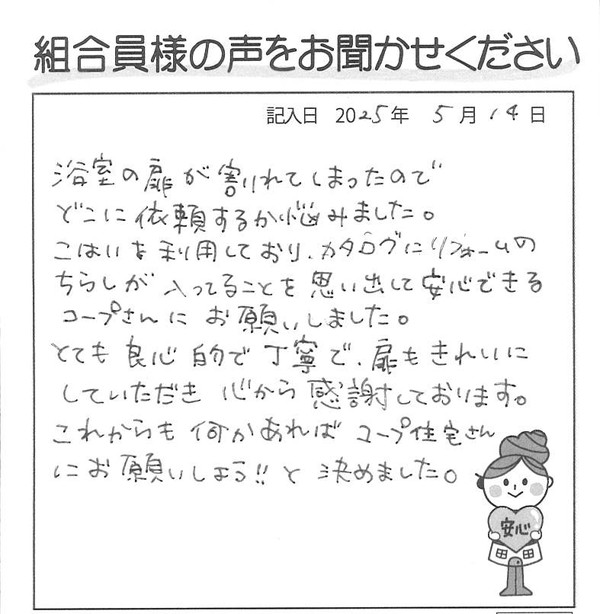 組合員様の声をお聞かせください
記入日 2025年 5月14日
浴室の扉が割れてしまったので
どこに依頼するか悩みました。
こはいを利用しており、カタログにリフォームの
ちらしが入ってることを思い出して安心できる
コープさんにお願いしました。
とても良心的で丁寧で、扉もきれいに
していただき心から感謝しております。
これからも何かあればコープ住宅さん
にお願いしよう!!と決めました。
安心